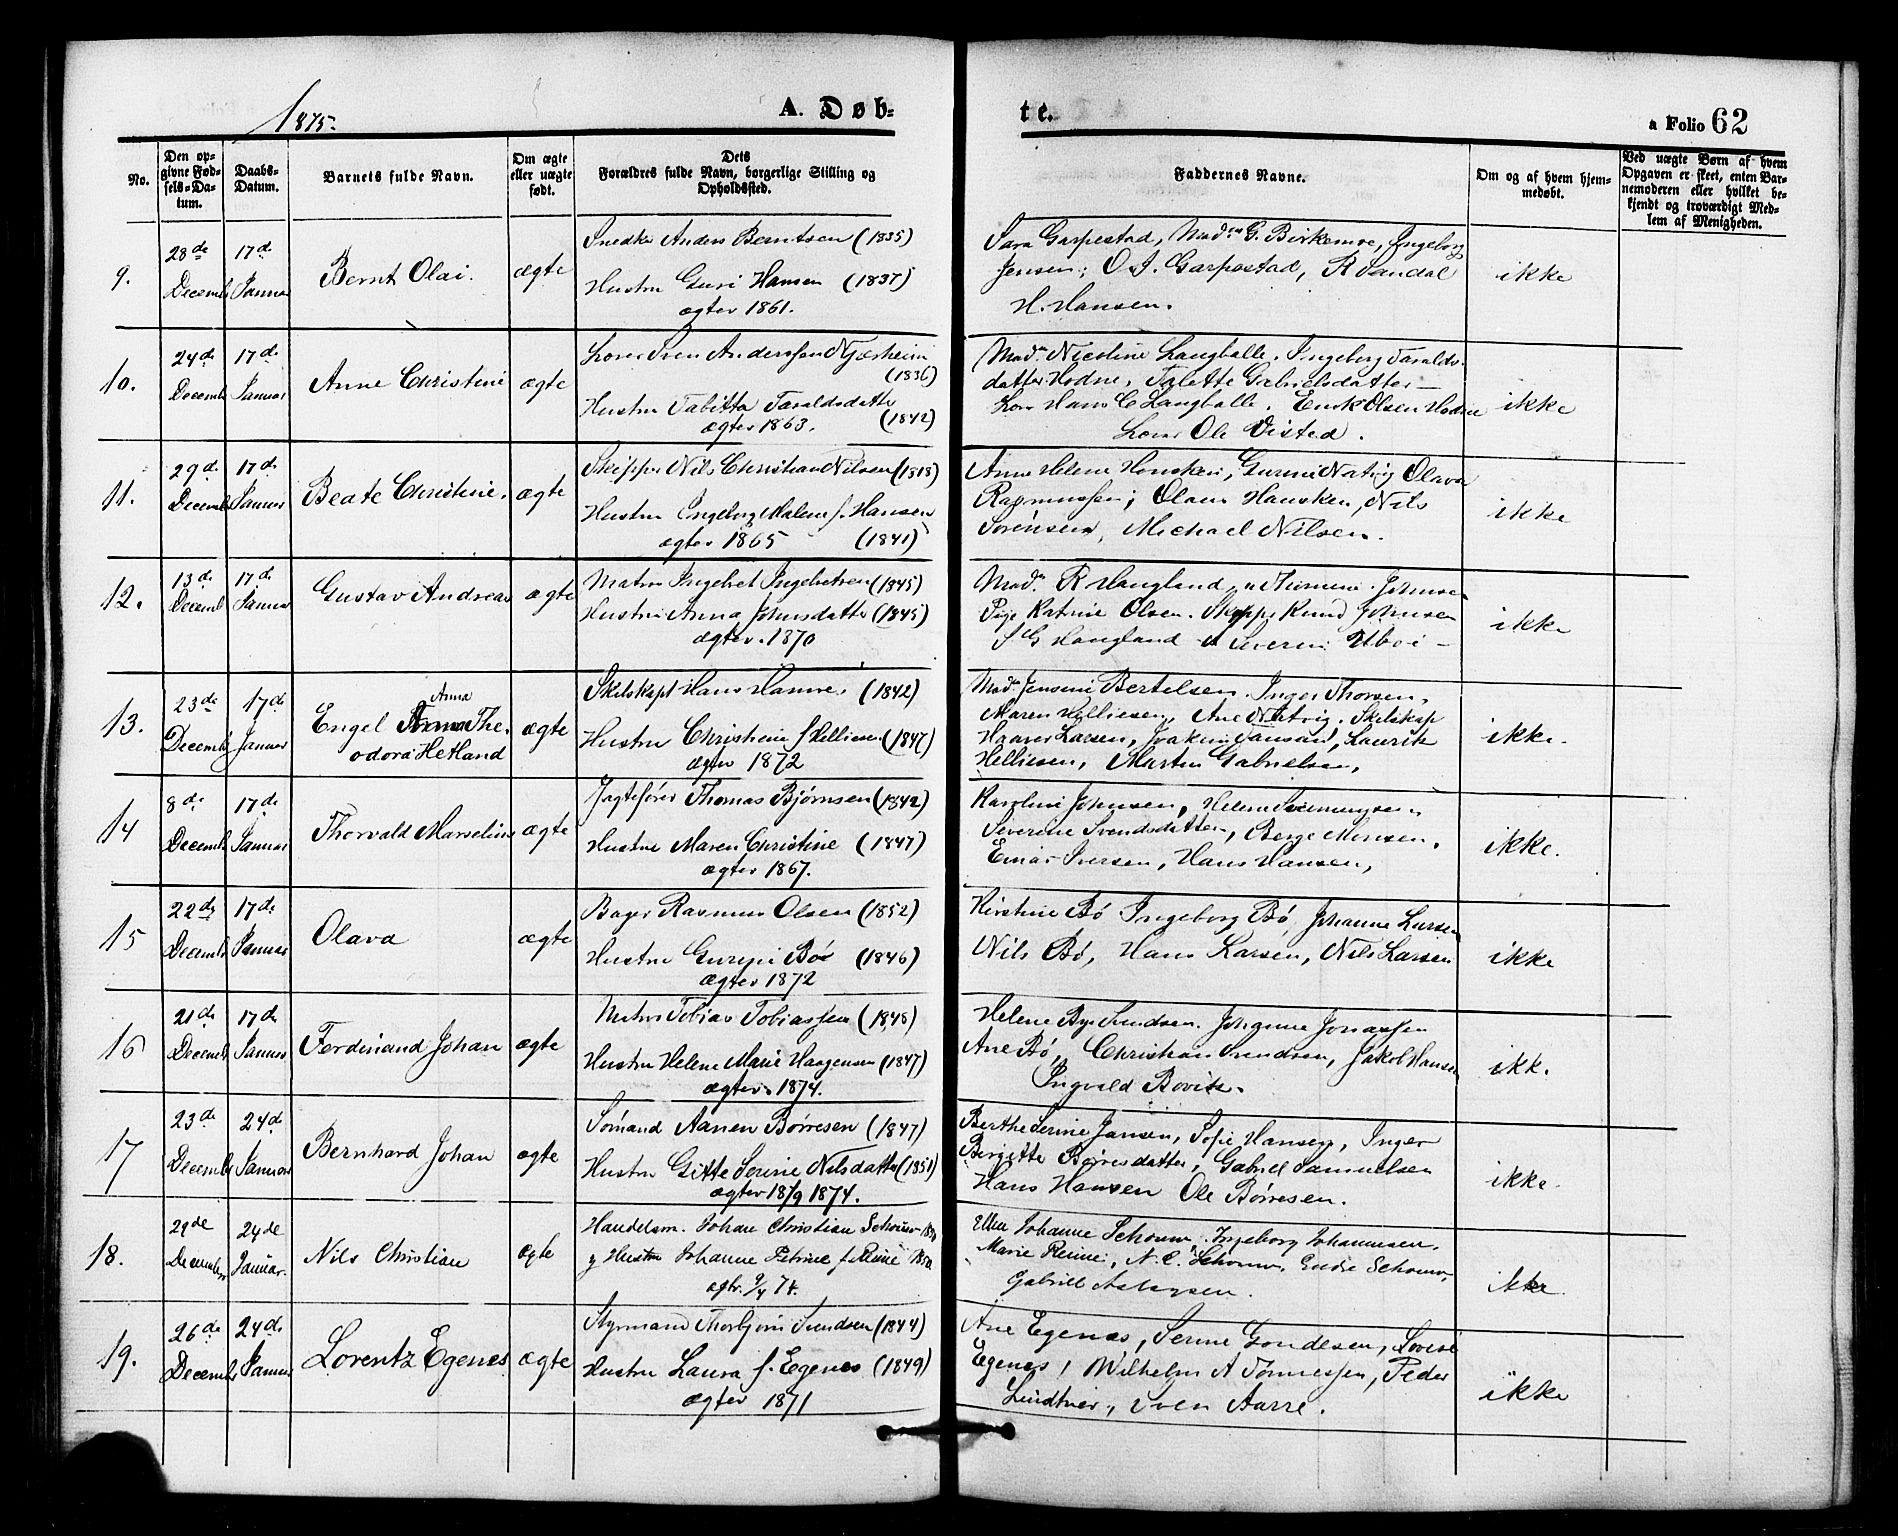 1875.
A. Døb-
te.
a Folio 62
No.
Den op-
givne Fød-
sels-Da-
tum.
Daabs-
Datum.
Barnets fulde Navn.
Om ægte
eller uægte
født.
Dets
Forældres fulde Navn, borgerlige Stilling og
Opholdssted.
Faddernes Navne.
Om og af hvem hjem-
medøbt.
Ved uægte Børn af hvem
Opgaven er skeet, enten Bar-
nemoderen eller hvilket be-
kjendt og troværdigt Med-
lem af Menigheden.
9.
28de
Decemb
17de
Januar
Bernt Olai.
ægte
Snedker Anders Berntsen (1835)
Hustru Guri Hansen (1837)
ægtev 1861.
Sara Garpestad, Madm G. Birkemoe, Ingeborg
Jensen; O. J. Garpestad, R Sandal
H. Hansen.
ikke
10.
24de
Decemb
17de
Januar
Anne Christine
ægte
Sven Anderssen Njærheim
(1836)
Hustru Tabitta Taraldsdatter
(1842)
ægtev 1863.
Madm Nicoline Langballe. Ingeborg Taralds-
datter Hodne, Talette Gabrielsdatter
Hans C Langballe. Olsen Hodne
Ole Visted.
ikke
11.
29de
Decemb
17de
Januar
Beate Christine.
ægte
Skipper Nils Christian Nilsen (1818)
Hustru Engeborg Malene f. Hansen
ægtev 1865 (1841)
Anne Helene Hausken, Gurine Natvig Olava
Rasmussen; Olaus Hausken, Nils
Sørensen, Michael Nilsen.
ikke
12.
13de
Decemb
17de
Januar
Gustav Andreas
ægte
Matros Ingebret Ingebretsen (1845)
Hustru Anna Johnsdatter (1845)
ægtev. 1870
Madm R Haugland, Johnsen
Pige Katrine Olsen. Skipper Knud Johnsen
S G Haugland Severin
ikke
13.
23de
Decemb
17de
Januar
Anna
Engel Anna The-
odora Hetland
ægte
Skilskapt Hans Hamre (1842)
Hustru Christine f Helliesen (1847)
ægtev 1872
Madm Jensine Bertelsen. Inger Thorsen,
Maren Helliesen, Ane Natvig. Skilskap
Haaver Larsen, Joakim Jansen, Laurits
Helliesen, Martin Gabrielsen,
ikke.
14
8de
Decemb
17de
Januar
Thorvald Marselius
ægte
Jagtefører Thomas Bjørnsen (1842)
Hustru Maren Christine (1847)
ægtev 1867.
Karoline Johnsen, Helene
Severine Svendsdatter, Berge Monsen.
Einar Iversen, Hans Hansen,
ikke.
15
22de
Decemb
17de
Januar
Olava
ægte
Bager Rasmus Olsen (1852)
Hustru Bø (1846)
ægtev 1872
Kirstine Bø Ingeborg Bø, Johanne Larsen
Nils Bø, Hans Larsen, Nils Larsen
ikke
16
21de
Decemb
17de
Januar
Ferdinand Johan
ægte
Matros Tobias Tobiassen (1848)
Hustru Helene Marie Haagensen (1847)
ægtev. 1874.
Helene Svendsen. Johanne Jonassen
Ane Bø, Christian Svendsen, Jakob Hansen
Ingvald
ikk.
17
23de
Decemb
24de
Januar
Bernhard Johan
ægte
Sømand Aanen Børresen (1847)
Hustru Gitte Serine Nilsdatter (1851)
ægtev 18/9 1874.
Berthe Serine Jansen, Sofie Hansen, Inger
Birgitte Børresdatter, Gabriel Samuelsen
Hans Hansen Ole Børresen.
ikke.
18.
29de
December
24de
Januar.
Nils Christian
ægte
Handelsm. Johan Christian Schouw
g Hustru Johanne Petrine f. Reime 1850
ægtv. 9/4 74.
Johanne Schouw. Ingeborg Johannesen.
Marie Reime, N. C. Schouw, Endre Schouw,
Gabriel Aslagsen.
ikke
19.
26de
Decemb
24de
Januar
Lorentz Egenes
ægte
Styrmand Thorbjørn Svendsen (1844)
Hustru Laura f. Egenes (1849)
ægtev 1871
Ane Egenæs, Serine Gondesen, Lovise
Egenæs, Wilhelm A Tønnessen, Peder
Lindtner, Sven Aarre.
ikke